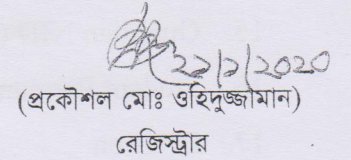 22/2/2020
(প্রকৌশল মোঃ ওহিদুজ্জামান)
রেজিস্ট্রার